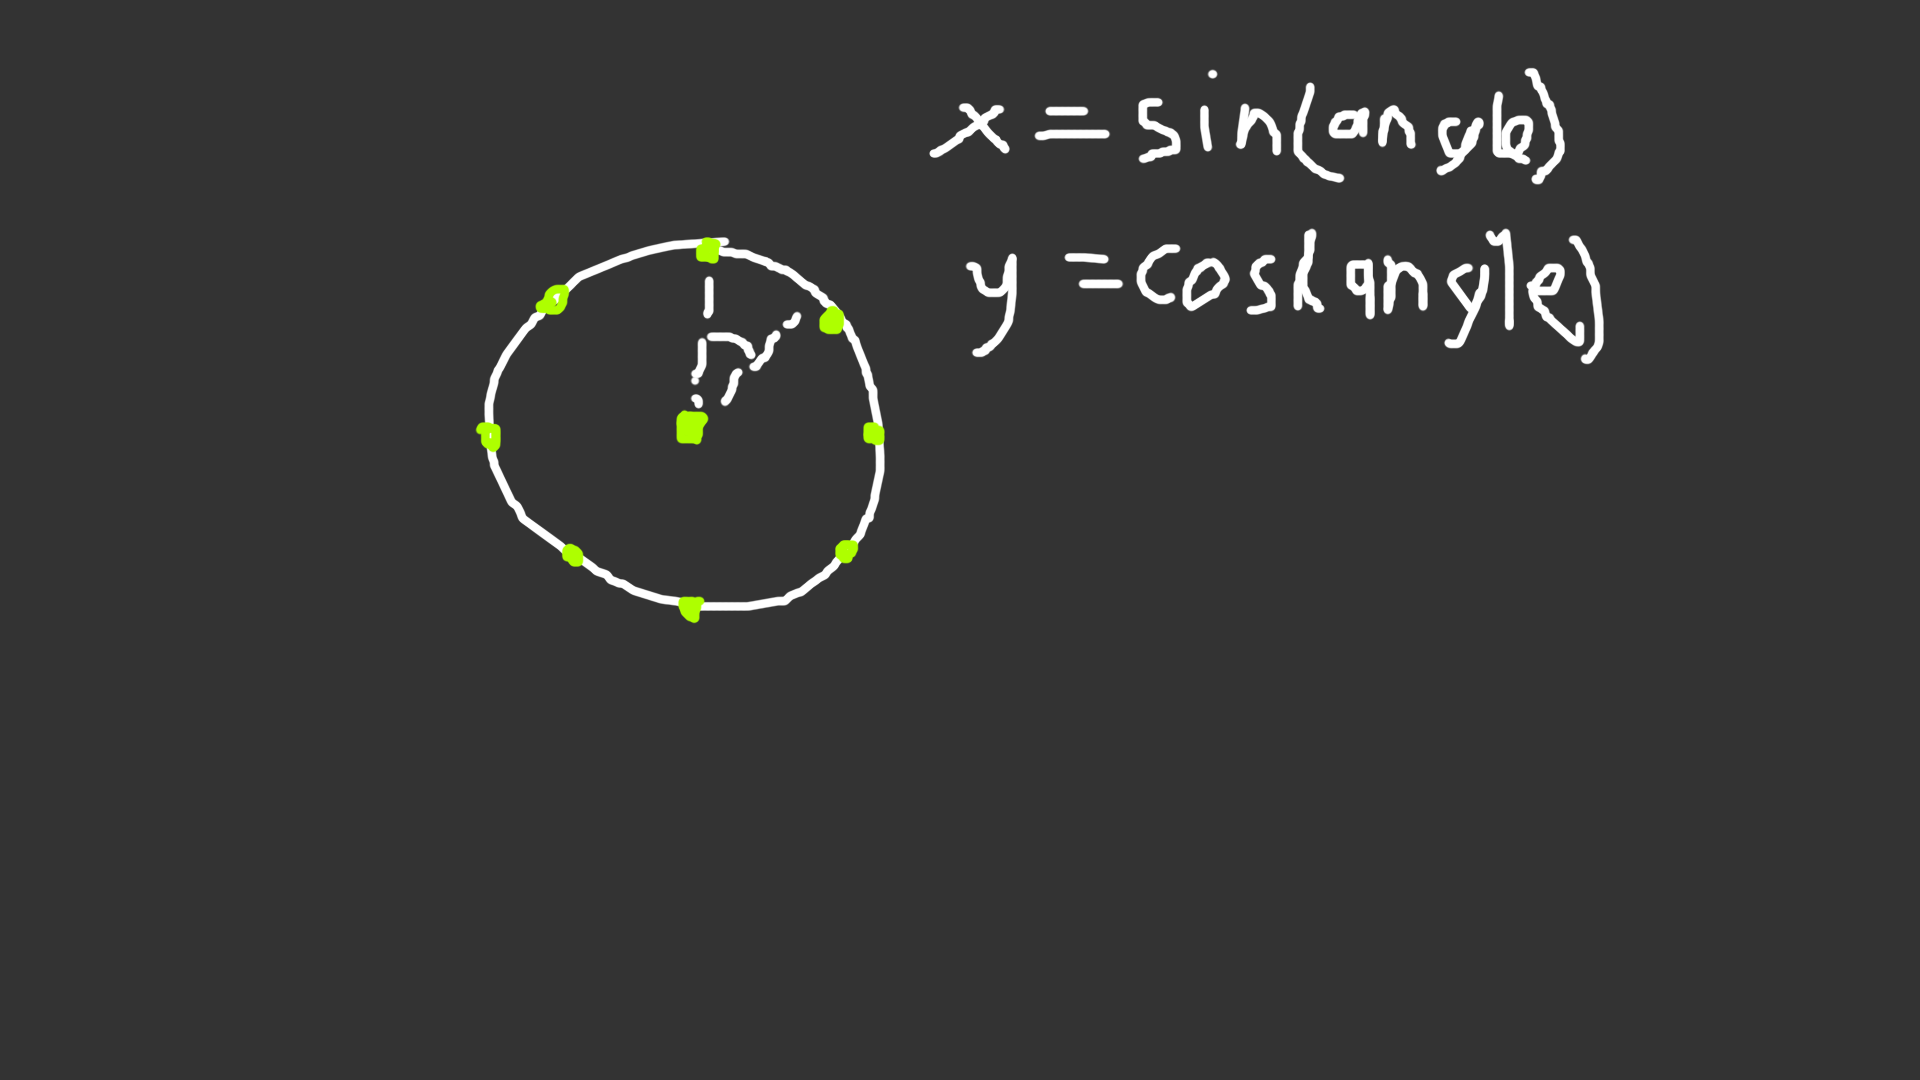 x = sin(angle)
y = cos(angle)